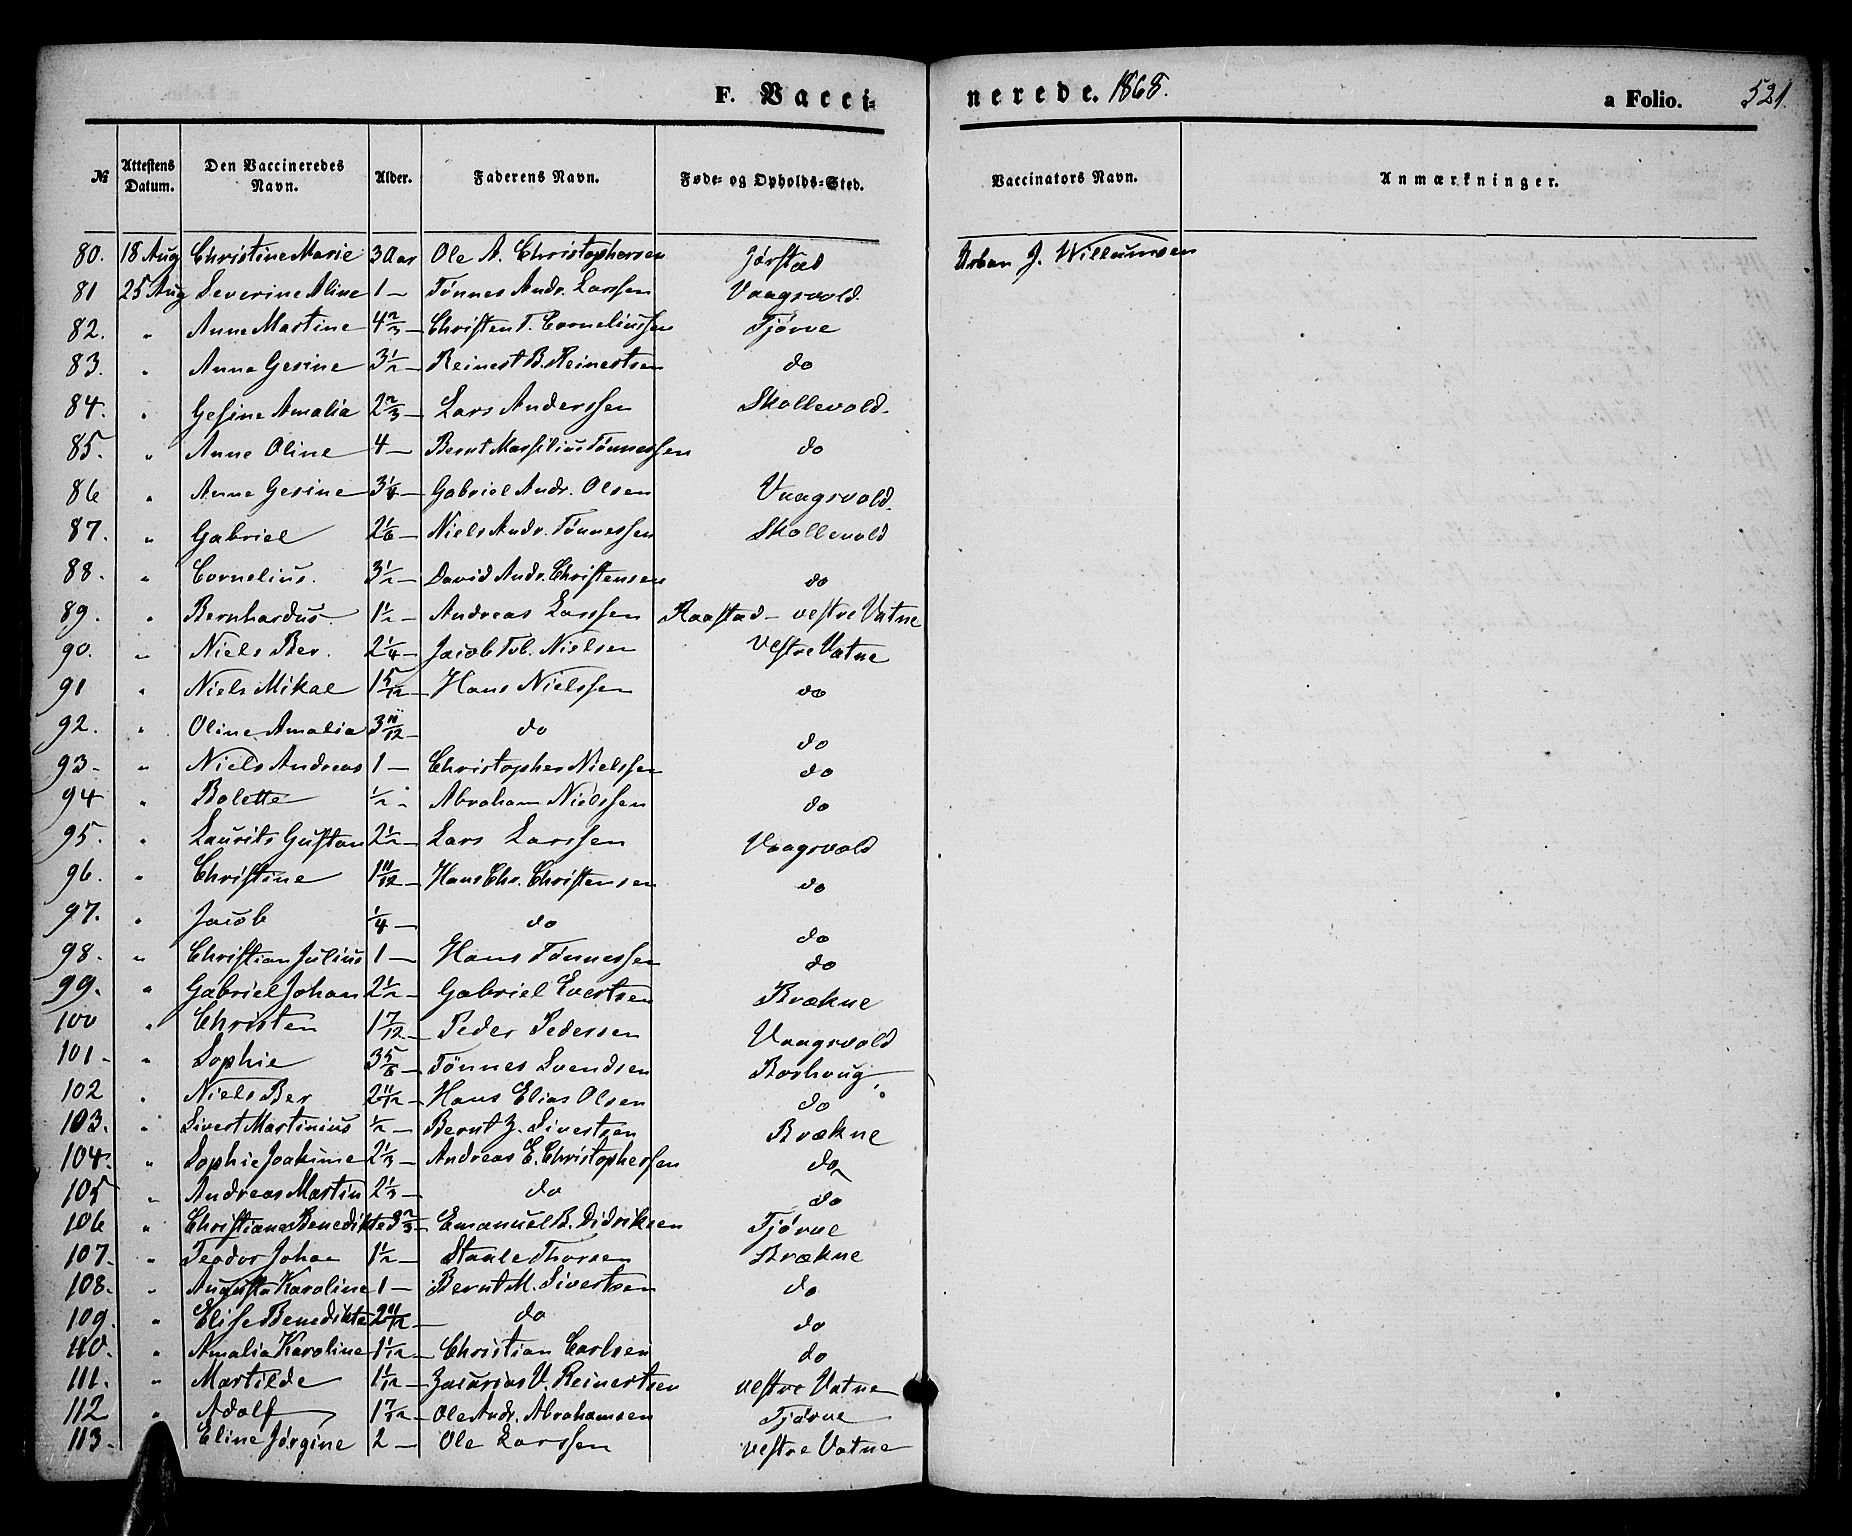 F. Vacci= nerede. 1868. a Folio. 521.
№ Attestens Datum. Den Vaccineredes Navn. Alder. Faderens Navn. Føde- og Opholds-Sted. Vaccinators Navn. Anmærkninger.
80. 18 Aug Christine Marie 3 Aar Ole A. Christophersen Jørstad Urban J. Willumsen
81 25 Aug Severine Aline 1 — Tønnes Andr. Larssen Vaagsvold.
82. " Anne Martine 4 2/3 — Christen T. Corneliussen Tjørve
83. " Anne Gesine 3 1/2 — Reinert B. Reinertsen do
84. " Gesine Amalia 2 2/3 — Lars Anderssen Skollevold.
85. " Anne Oline 4 — Bernt Marsilius Tønnessen do
86 " Anne Gesine 3 1/4 — Gabriel Andr. Olsen Vaagsvold.
87. " Gabriel 2 1/6 — Niels Andr. Tønnessen Skollevold
88. " Cornelius. 3 1/2 — David Andr. Christensen do
89. " Bernhardus 1 1/2 — Andreas Larssen Raastad — vestre Vatne
90. " Niels Ber. 2 1/4 — Jacob Tb. Nielsen Vestre Vatne
91 " Niels Mikal 1 5/12 — Hans Nielssen do
92. " Oline Amalia 3 11/12 — do do
93 - " Niels Andreas 1 — Christopher Nielssen do
94 " Bolette 1/2 - Abraham Nielssen do
95. " Laurits Gustav 2 1/2 — Lars Larssen Vaagsvold
96. " Christine 1 11/12 — Hans Chr. Christensen do
97. " Jacob 1/4 — do do
98. " Christian Julius 1 — Hans Tønnessen do
99. " Gabriel Johan 2 1/2 — Gabriel Evertsen Brækne
100 " Christen 1 7/12 — Peder Pedersen Vaagsvold
101 - " Sophie 3 5/6 — Tønnes Svendsen Boshoug
102 " Niels Ber 2 11/12 — Hans Elias Olsen do
103. " Sivert Martinius 1/2 — Bernt Z. Sivertsen Brækne
104. " Sophie Joakime 2 1/3 — Andreas E. Christophersen do
105 " Andreas Martin 2 1/3 — do do
106 " Christiane Benedikte 3 2/3 — Emanuel B. Didriksen Tjørve
107. " Teodor Johan 1 1/2 — Staale Thorsen Brækne
108. " Augusta Karoline 1 — Bernt M. Sivertsen do
109. " Elise Benedikte 2 11/12 — do do
110. " Amalia Karoline 1 1/12 — Christian Carlsen do
111. " Martilde 1 1/12 — Zacarias V. Reinertsen vestre Vatne
112 " Adolf 1 7/12 — Ole Andr. Abrahamsen Tjørve
113. Eline Jørgine 2 — Ole Larssen vestre Vatne